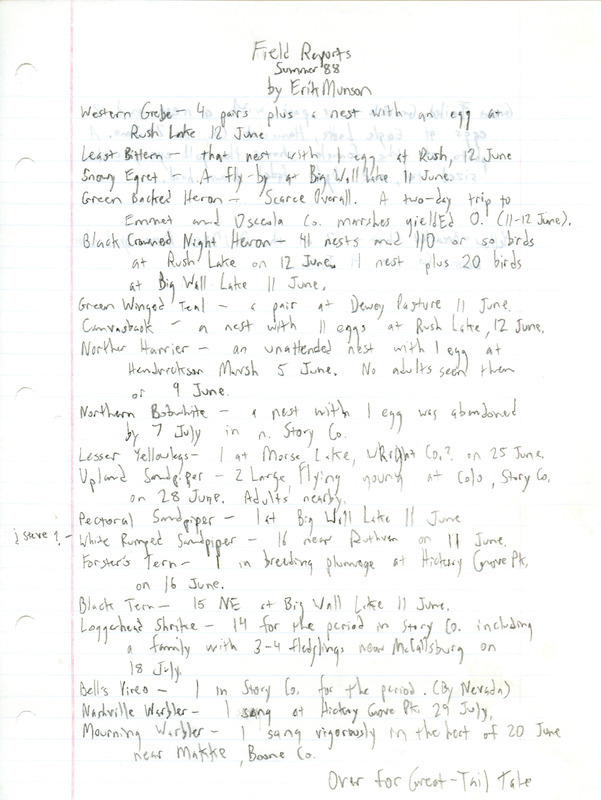 Field Reports
Summer 88
by Erik Munson
Western Grebe - 4 pairs plus a nest with an egg at
Rush Lake 12 June
Least Bittern - that nest with 1 egg at Rush, 12 June
Snowy Egret - A fly-by at Big Wall Lake 11 June.
Green Backed Heron - Scarce Overall. A two-day trip to
Emmet and Osceola Co. marshes yiellEd 0. (11-12 June).
Black Crowned Night Heron - 41 nests and 110 or so birds
at Rush Lake on 12 June. 1 nest plus 20 birds
at Big Wall Lake 11 June.
Green Winged Teal - a pair at Dewey Pasture 11 June.
Canvasback - a nest with 11 eggs at Rush Lake, 12 June.
Norther Harrier - an unattended nest with 1 egg at
Hendrickson Marsh 5 June. No adults seen then
or 9 June.
Northern Bobwhite - a nest with 1 egg was abandoned
by 7 July in n. Story Co.
Lesser Yellowlegs - 1 at Morse Lake, Wright Co.? on 25 June.
Upland Sandpiper - 2 Large, Flying young at Colo, Story Co.
on 28 June. Adults nearby.
Pectoral Sandpiper - 1 at Big Wall Lake 11 June
White Rumped Sandpiper - 16 near Ruthven on 11 June.
Forster's Tern - 1 in breeding plumage at Hickory Grove Pk.
on 16 June.
Black Tern - 15 NE at Big Wall Lake 11 June.
Loggerhead Shrike - 14 for the period in Story Co. including
a family with 3-4 fledglings near McCallsburg on
18 July.
Bell's Vireo - 1 in Story Co. for the period. (By Nevada)
Nashville Warbler - 1 sang at Hickory Grove Pk. 29 July.
Mourning Warbler - 1 sang vigorously in the heat of 20 June
near Makke, Boone Co.
Over for Great-Tail Tale